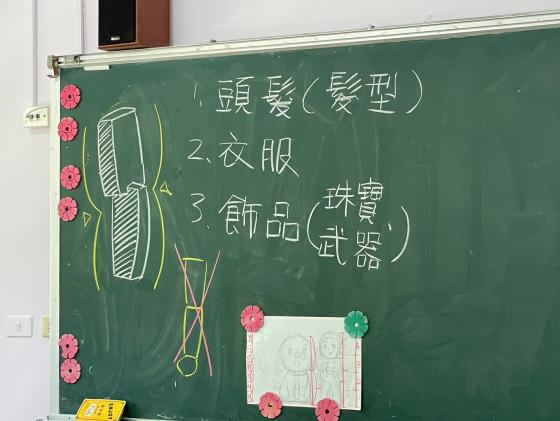 1. 頭髮(髮型)
2. 衣服
3. 飾品(珠寶、武器)